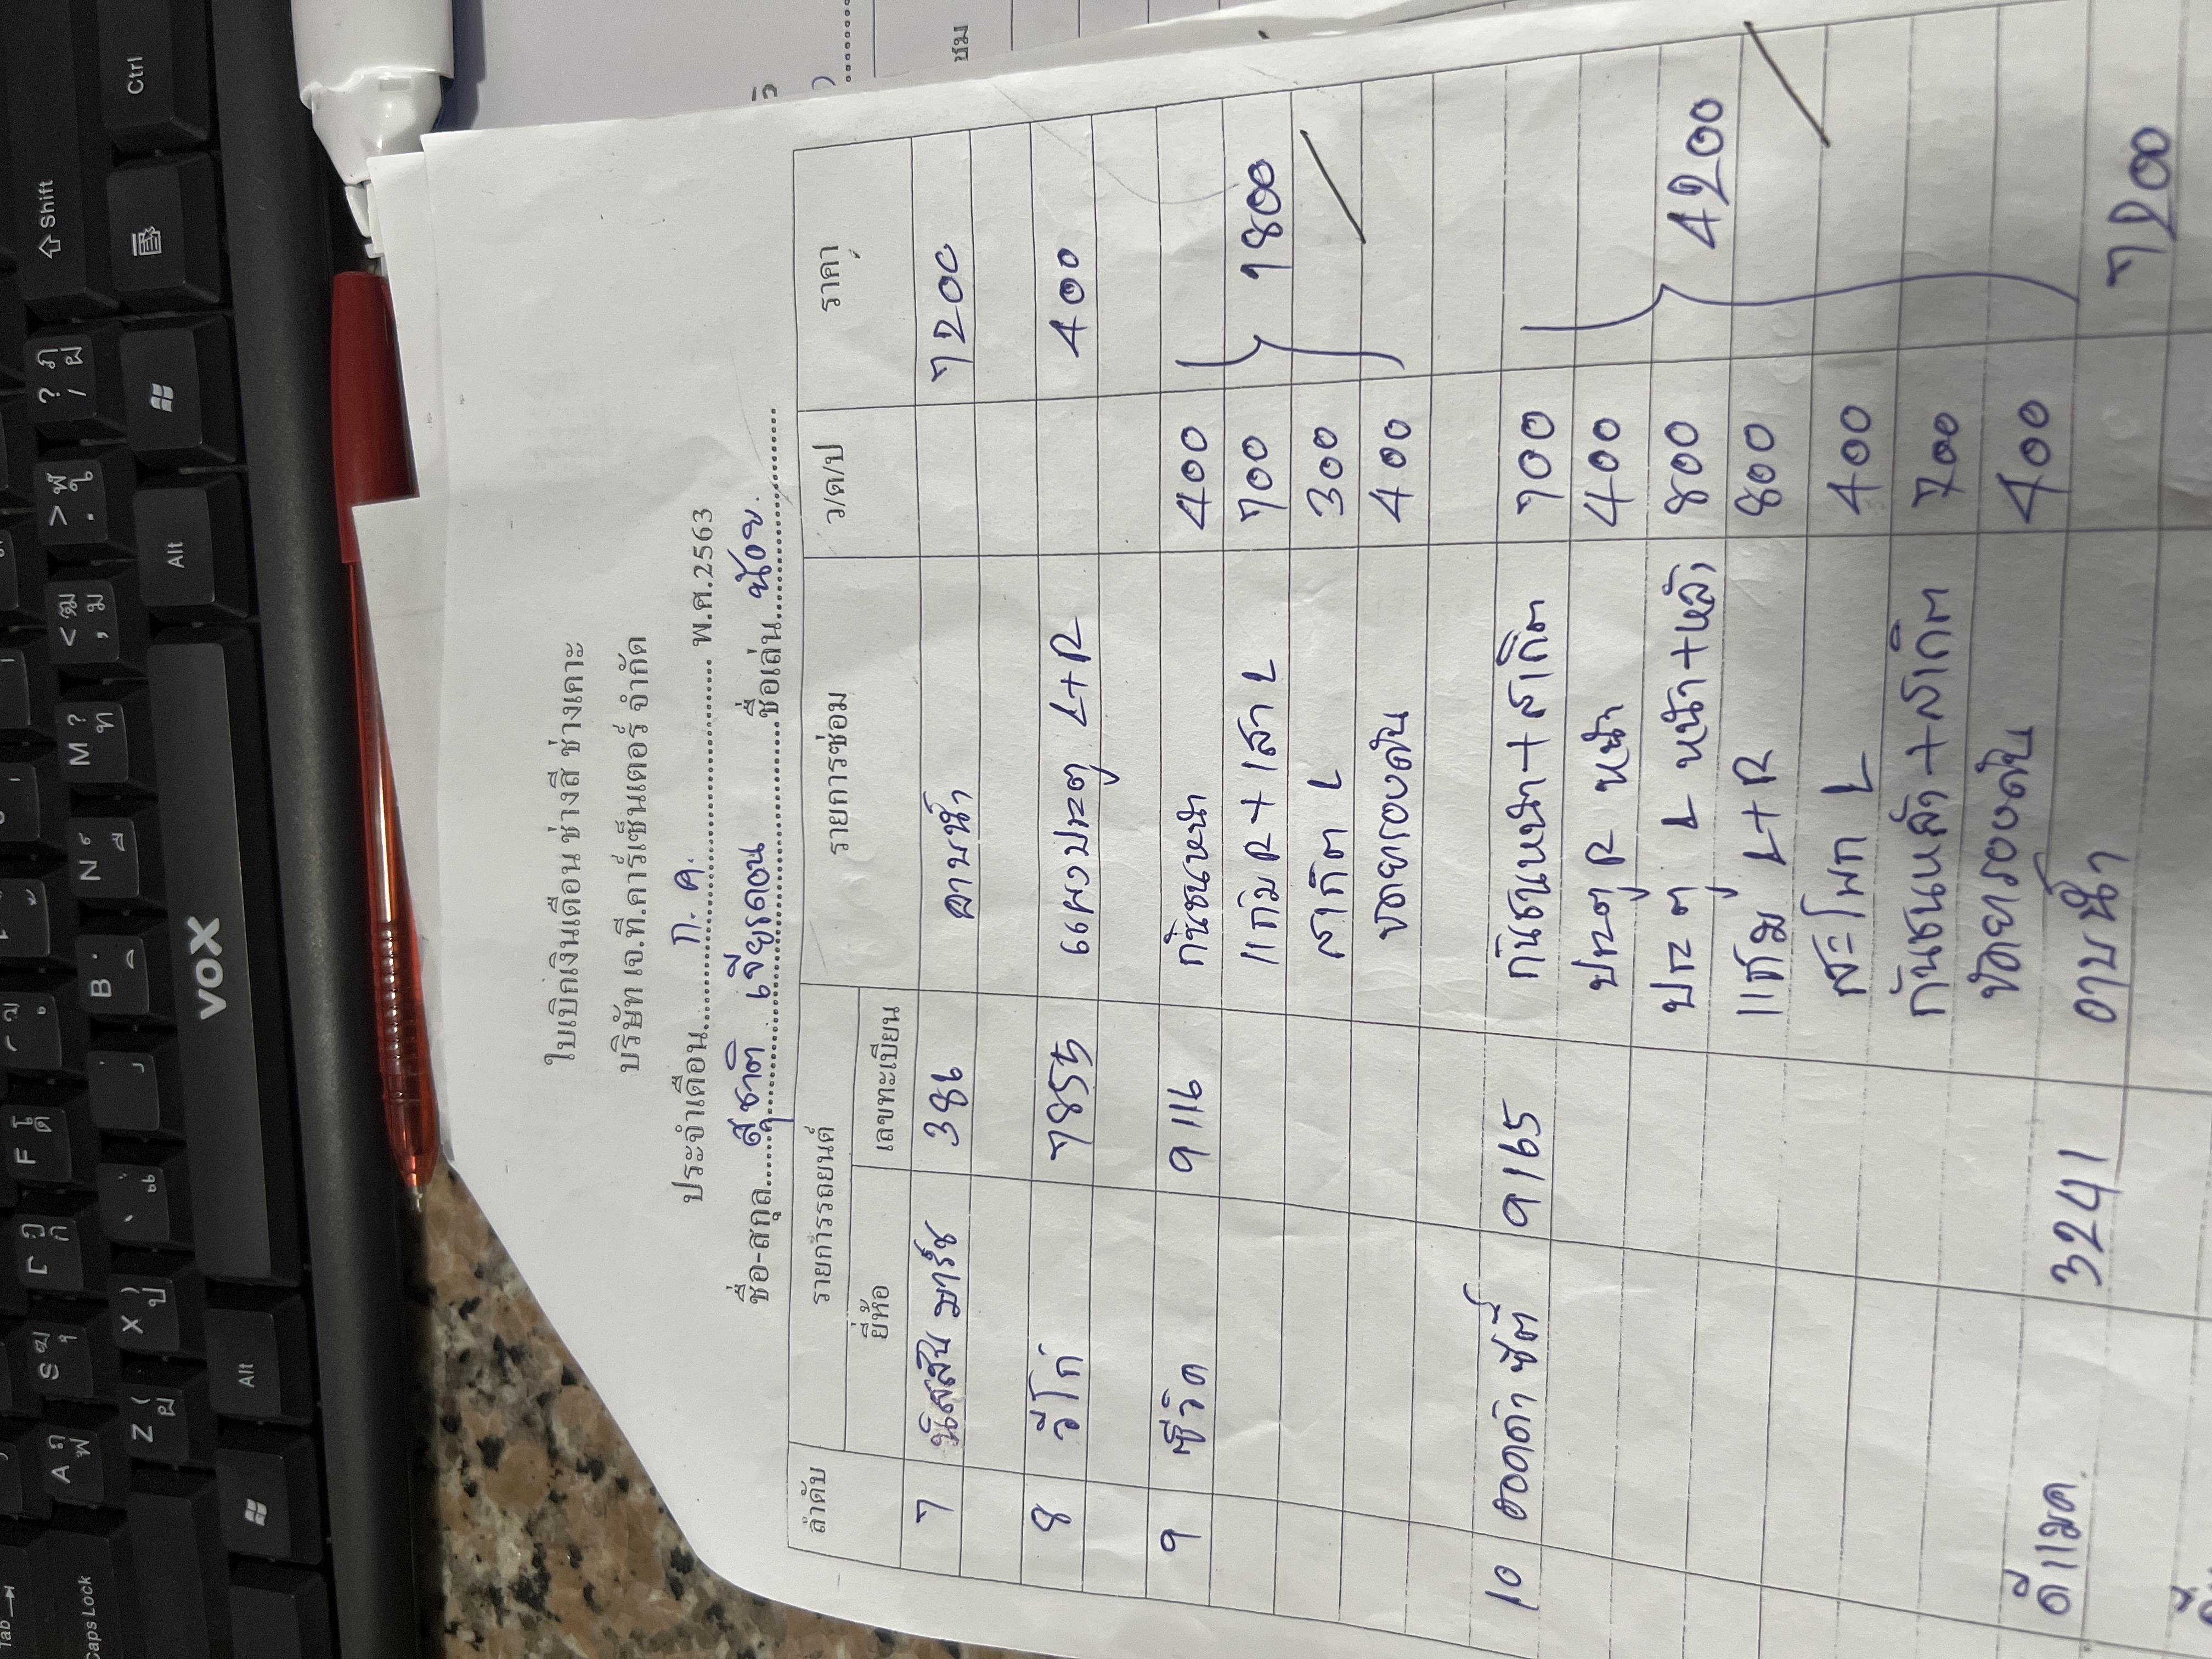 ใบเบิกเงินเดือน ช่างสี ช่างเคาะ
บริษัท เจ.ที.คาร์เซ็นเตอร์ จำกัด
ประจำเดือน ก.ค. พ.ศ.2563
ชื่อ-สกุล สุชาติ เจียรดอน ชื่อเล่น น้อย
ลำดับ รายการรถยนต์ รายการซ่อม ว/ด/ป ราคา
ยี่ห้อ เลขทะเบียน
7 นิสสัน มาร์ช 386 อาบน้ำ 7200
8 วีโก่ 7855 แผงประตู L+R 400
9 ซีวิค 9116 กันชนหน้า 400
แก้ม R + เสา L 700 1800
สเกิต L 300
ชายรองคัน 400
10 ฮอนด้า ซิตี้ 9165 กันชนหน้า+สเกิต 700
ประตู R หน้า 400
ประตู L หน้า+หลัง 800 4200
แก้ม L+R 800
สะโพก L 400
กันชนหลัง+สเกิต 700
ชายรองคัน 400
ดีแมค 3241 อาบน้ำ 7200
ชม
Shift
Ctrl
Alt
VOX
Tab
Caps Lock